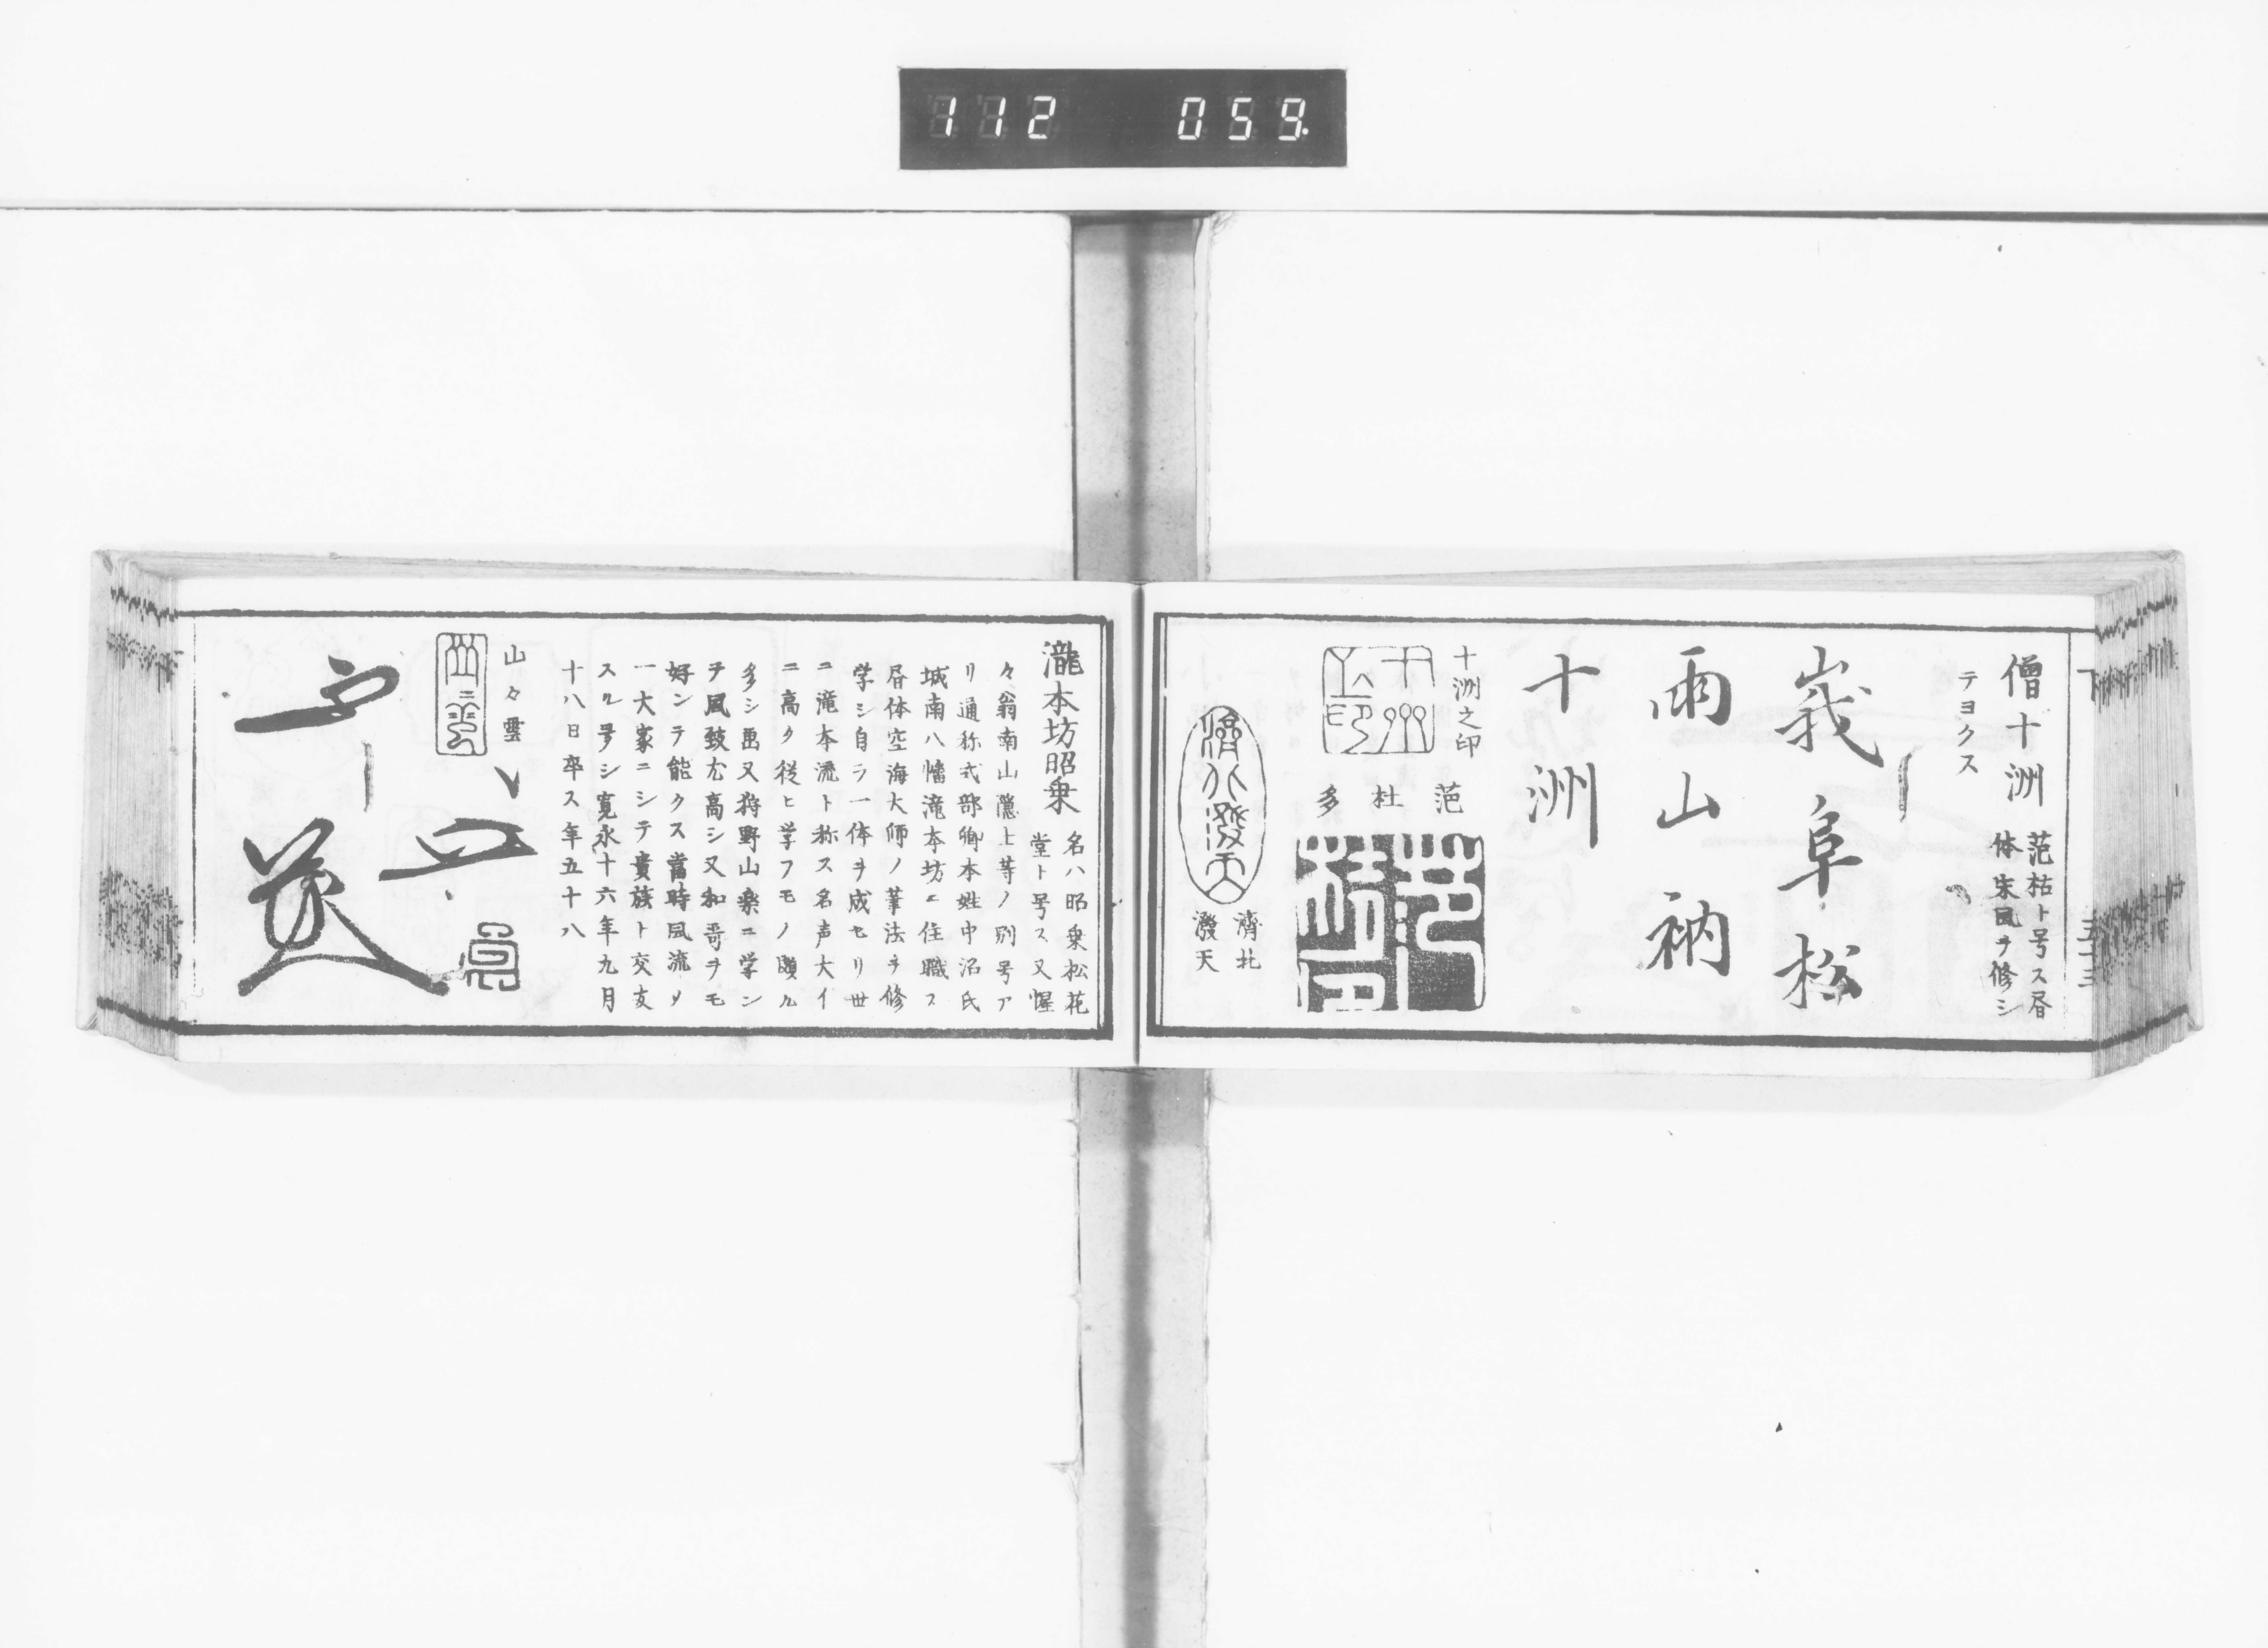 112 059
僧十洲
范枯ト号ス
体宋風ヲ修シ
テヨクス
峩阜松
雨山衲
十洲
十洲之印
范
杜
多
濟北
潑天
瀧本坊昭乗
名ハ昭乗松花
堂ト号ス又惺
々翁南山隠士等ノ別号ア
リ通称式部卿本姓中沼氏
城南八幡滝本坊ニ住職ス
体空海大師ノ筆法ヲ修
学シ自ラ一体ヲ成セリ世
ニ滝本流ト称ス名声大イ
ニ高ク従ヒ学フモノ頗ル
多シ画又狩野山楽ニ学ン
テ風致尤高シ又和哥ヲモ
好ンテ能クス當時風流ノ
一大家ニシテ貴族ト交友
スル多シ寛永十六年九月
十八日卒ス年五十八
山々雲